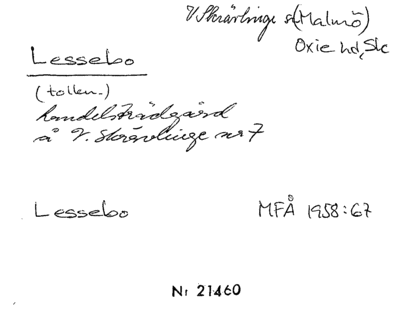 V Skrävlinge s (Malmö)
Oxie hd, Sk
Lessebo
(tollen.)
handelsträdgård
å V. Skrävlinge nr 7
Lessebo MFÅ 1958:67
Nr 21460